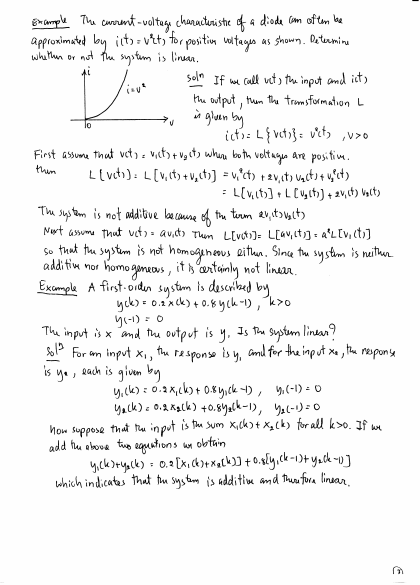 Example The current-voltage characteristic of a diode can often be
approximated by i(t) = v²(t) for positive voltages as shown. Determine
whether or not the system is linear.
i
i = v²
0
v
Solⁿ If we call v(t) the input and i(t)
the output, then the transformation L
is given by
i(t) = L{v(t)} = v²(t) , v>0
First assume that v(t) = v₁(t) + v₂(t) when both voltages are positive.
then L[v(t)] = L[v₁(t) + v₂(t)] = v₁²(t) + 2v₁(t)v₂(t) + v₂²(t)
= L[v₁(t)] + L[v₂(t)] + 2v₁(t)v₂(t)
The system is not additive because of the term 2v₁(t)v₂(t)
Next assume that v(t) = av₁(t) Then L[v(t)] = L[av₁(t)] = a²L[v₁(t)]
so that the system is not homogeneous either. Since the system is neither
additive nor homogeneous, it is certainly not linear.
Example A first-order system is described by
y(k) = 0.2x(k) + 0.8y(k-1), k>0
y(-1) = 0
The input is x and the output is y. Is the system linear?
Solⁿ For an input x₁, the response is y₁ and for the input x₂, the response
is y₂, each is given by
y₁(k) = 0.2x₁(k) + 0.8y₁(k-1), y₁(-1) = 0
y₂(k) = 0.2x₂(k) + 0.8y₂(k-1), y₂(-1) = 0
Now suppose that the input is the sum x₁(k) + x₂(k) for all k>0. If we
add the above two equations we obtain
y₁(k)+y₂(k) = 0.2[x₁(k)+x₂(k)] + 0.8[y₁(k-1)+y₂(k-1)]
which indicates that the system is additive and therefore linear.